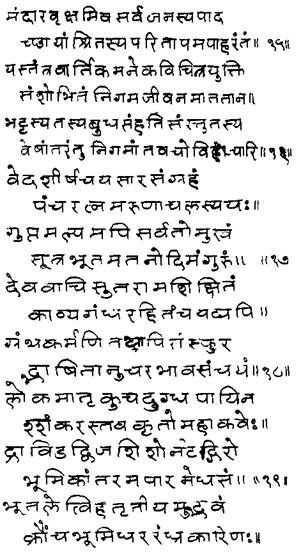 मंदारवृक्षमिव सर्वजनस्य पाद
च्छायां श्रितस्य परितापमपाहरंतं॥ १५॥
यस्तंत्रवार्तिकमनेकविचित्रयुक्ति
संशोभितं निगमजीवनमाततान॥
भट्टस्य तस्य बुधसंहतिसंस्तुतस्य
वेषांतरंतु निगमांतवचो विचारि॥ १६॥
वेदशीर्षचयसारसंग्रहं
पंचरत्नमरुणाचलस्य यः॥
गुप्तमल्पमपि सर्वतोमुखं
सूत्रभूतमतनोदिमंगुरुं॥ ॥१७
देववाचि सुतरामशिक्षितं
काव्यगंधरहितंच यद्यपि॥
ग्रंथकर्मणि तथापितंस्फुर
द्भाषितानुचरभावसंचयं॥१८॥
लोकमातृकुचदुग्धपायिन
शंशंकरस्तवकृतो महाकवेः॥
द्राविडद्विजशिशोर्नटद्गिरो
भूमिकांतरमपारमेधसं॥ ॥१९।
भूतले त्विह तृतीयमुद्भवं
क्रौंचभूमिधररंध्रकारिणः॥